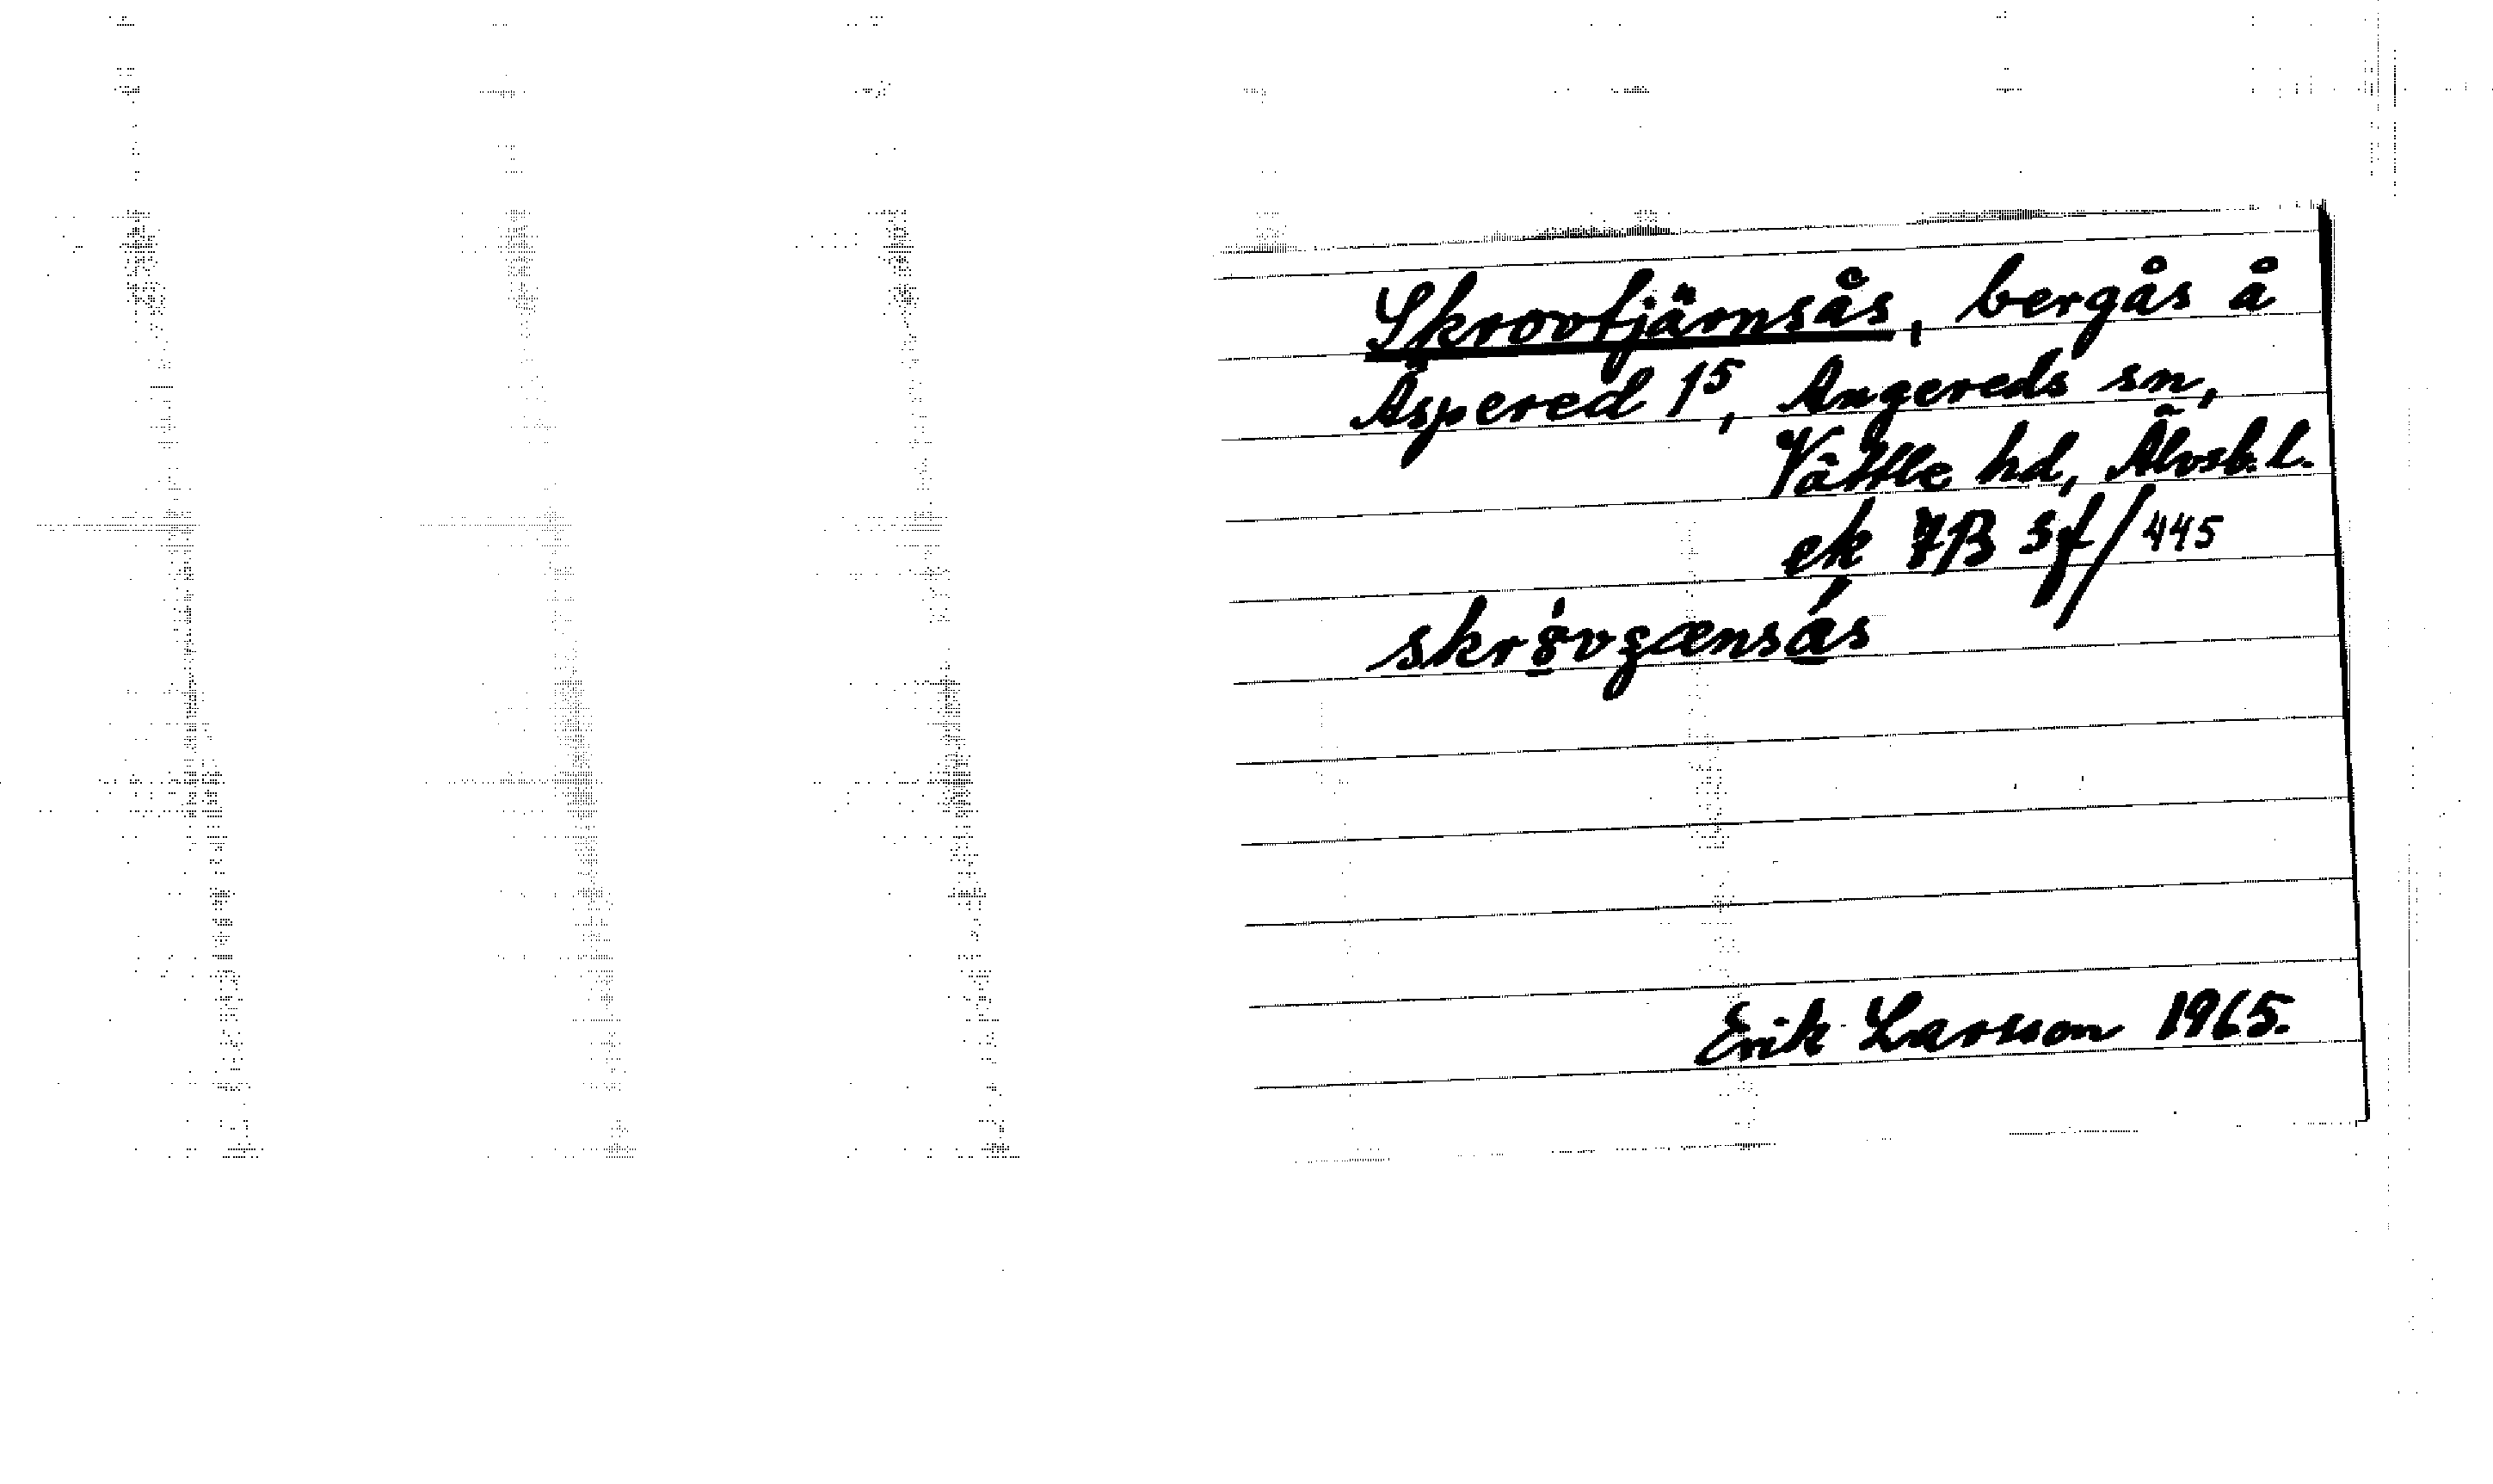 Skrovtjärnsås, bergås å
Äspered 1⁵, Angereds sn,
Vättle hd, Älvsb. l.
ek 7B 3f/445
Erik Larsson 1965.